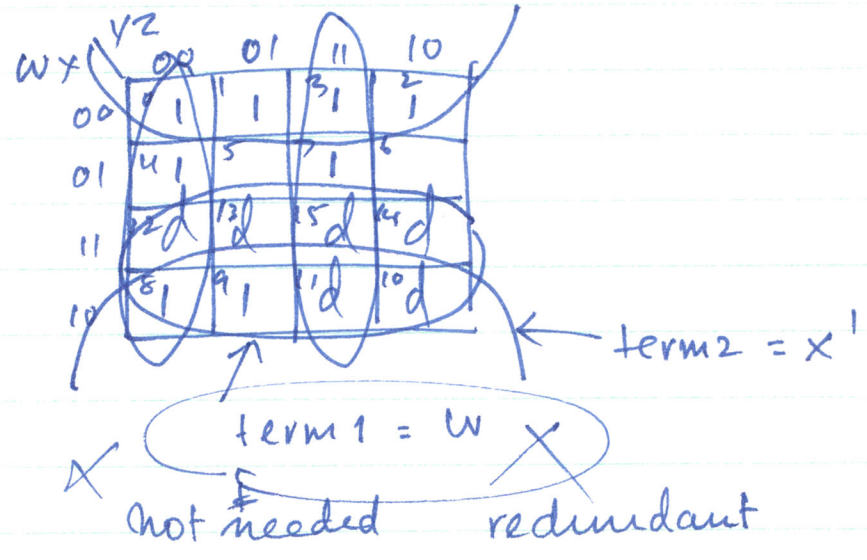 yz
wx 00 01 11 10
00 0 1 1 1 3 1 2 1
01 4 1 5 7 1 6
11 12 d 13 d 15 d 14 d
10 8 1 9 1 11 d 10 d
term2 = x'
term1 = w
not needed redundant